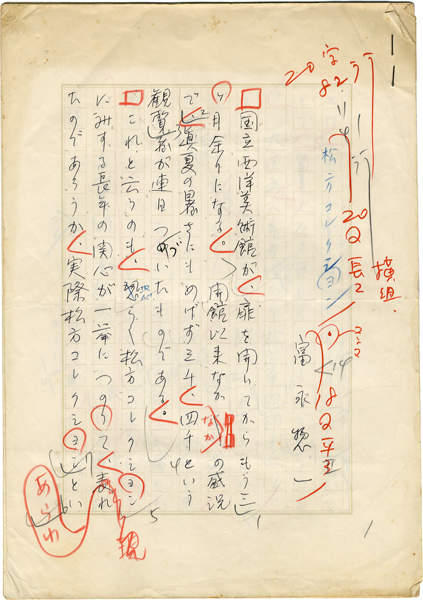 20字
82行
松方コレクション
20Q長2
横組
富永惣一
18Q平2
14
国立西洋美術館が、扉を開いてからもう三
ヶ月余りになる。開館以来なかなかの盛況
で、真夏の暑さにもめげず三千、四千という
観覧者が連日つめかけたものである。
これと云うのも、恐らく松方コレクション
にみする長年の関心が一挙につのりて、表れ
たのであろうか、実際松方コレクションとい
あらわ
現